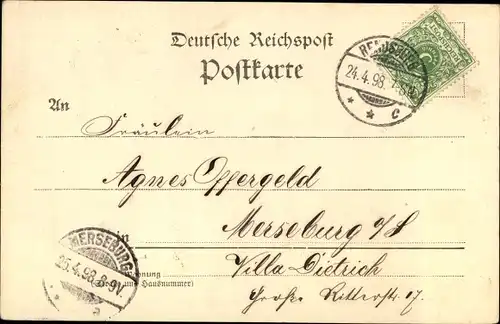 Deutsche Reichspost
Postkarte
RENDSBURG
24.4.98
c
An
Fräulein
Agnes Offergeld
Merseburg a/S
Villa Dietrich
Große Ritterstr. 17.
MERSEBURG
25.4.98. 8-9V.
a
Wohnung
und Hausnummer)